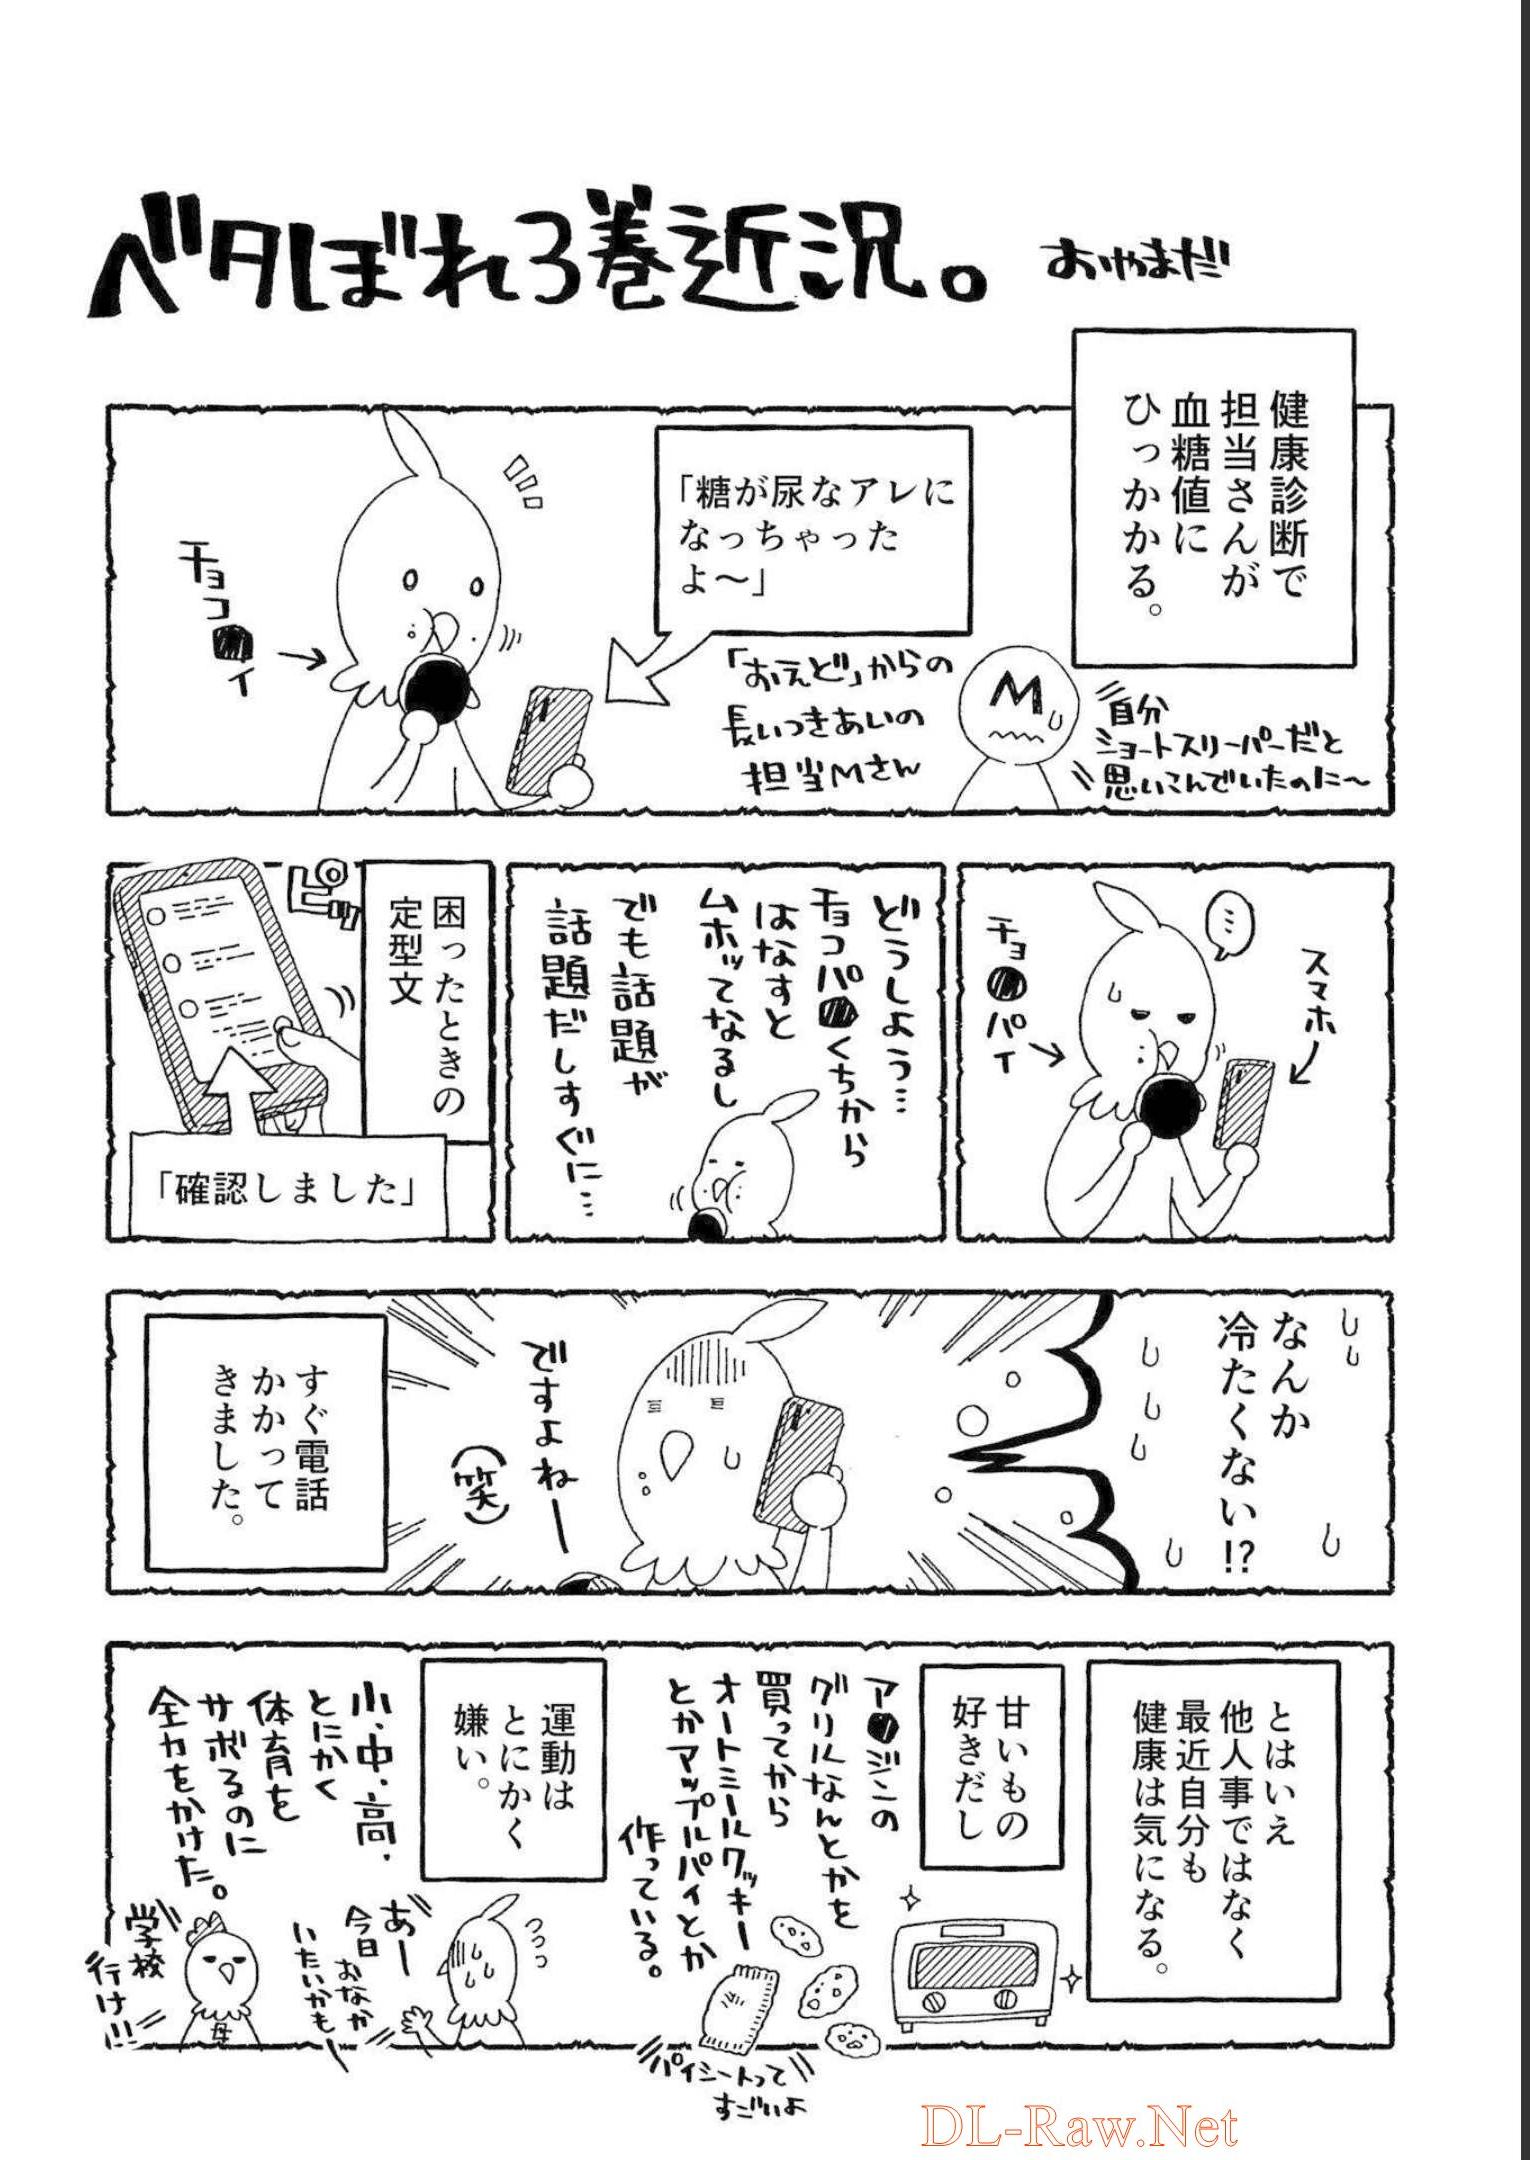 ベタぼれ3巻近況。
おやまだ
健康診断で
担当さんが
血糖値に
ひっかかる。
自分
ショートスリーパーだと
思いこんでいたのに〜
M
「糖が尿なアレに
なっちゃった
よ〜」
「おえど」からの
長いつきあいの
担当Mさん
チョコ●イ
スマホ
…
チョ●パイ
どうしよう…
チョコパ●くちから
はなすと
ムホッてなるし
でも話題が
話題だしすぐに…
困ったときの
定型文
ピロッ
「確認しました」
なんか
冷たくない!?
ですよねー
(笑)
すぐ電話
かかって
きました。
とはいえ
他人事ではなく
最近自分も
健康は気になる。
甘いもの
好きだし
ア●ジンの
グリルなんとかを
買ってから
オートミールクッキー
とかアップルパイとか
作っている。
パイシートって
すごいよ
運動は
とにかく
嫌い。
小・中・高、
とにかく
体育を
サボるのに
全力をかけた。
あー
今日
おなか
いたいかもー
つつつ
母
学校
行け!!
DL-Raw.Net